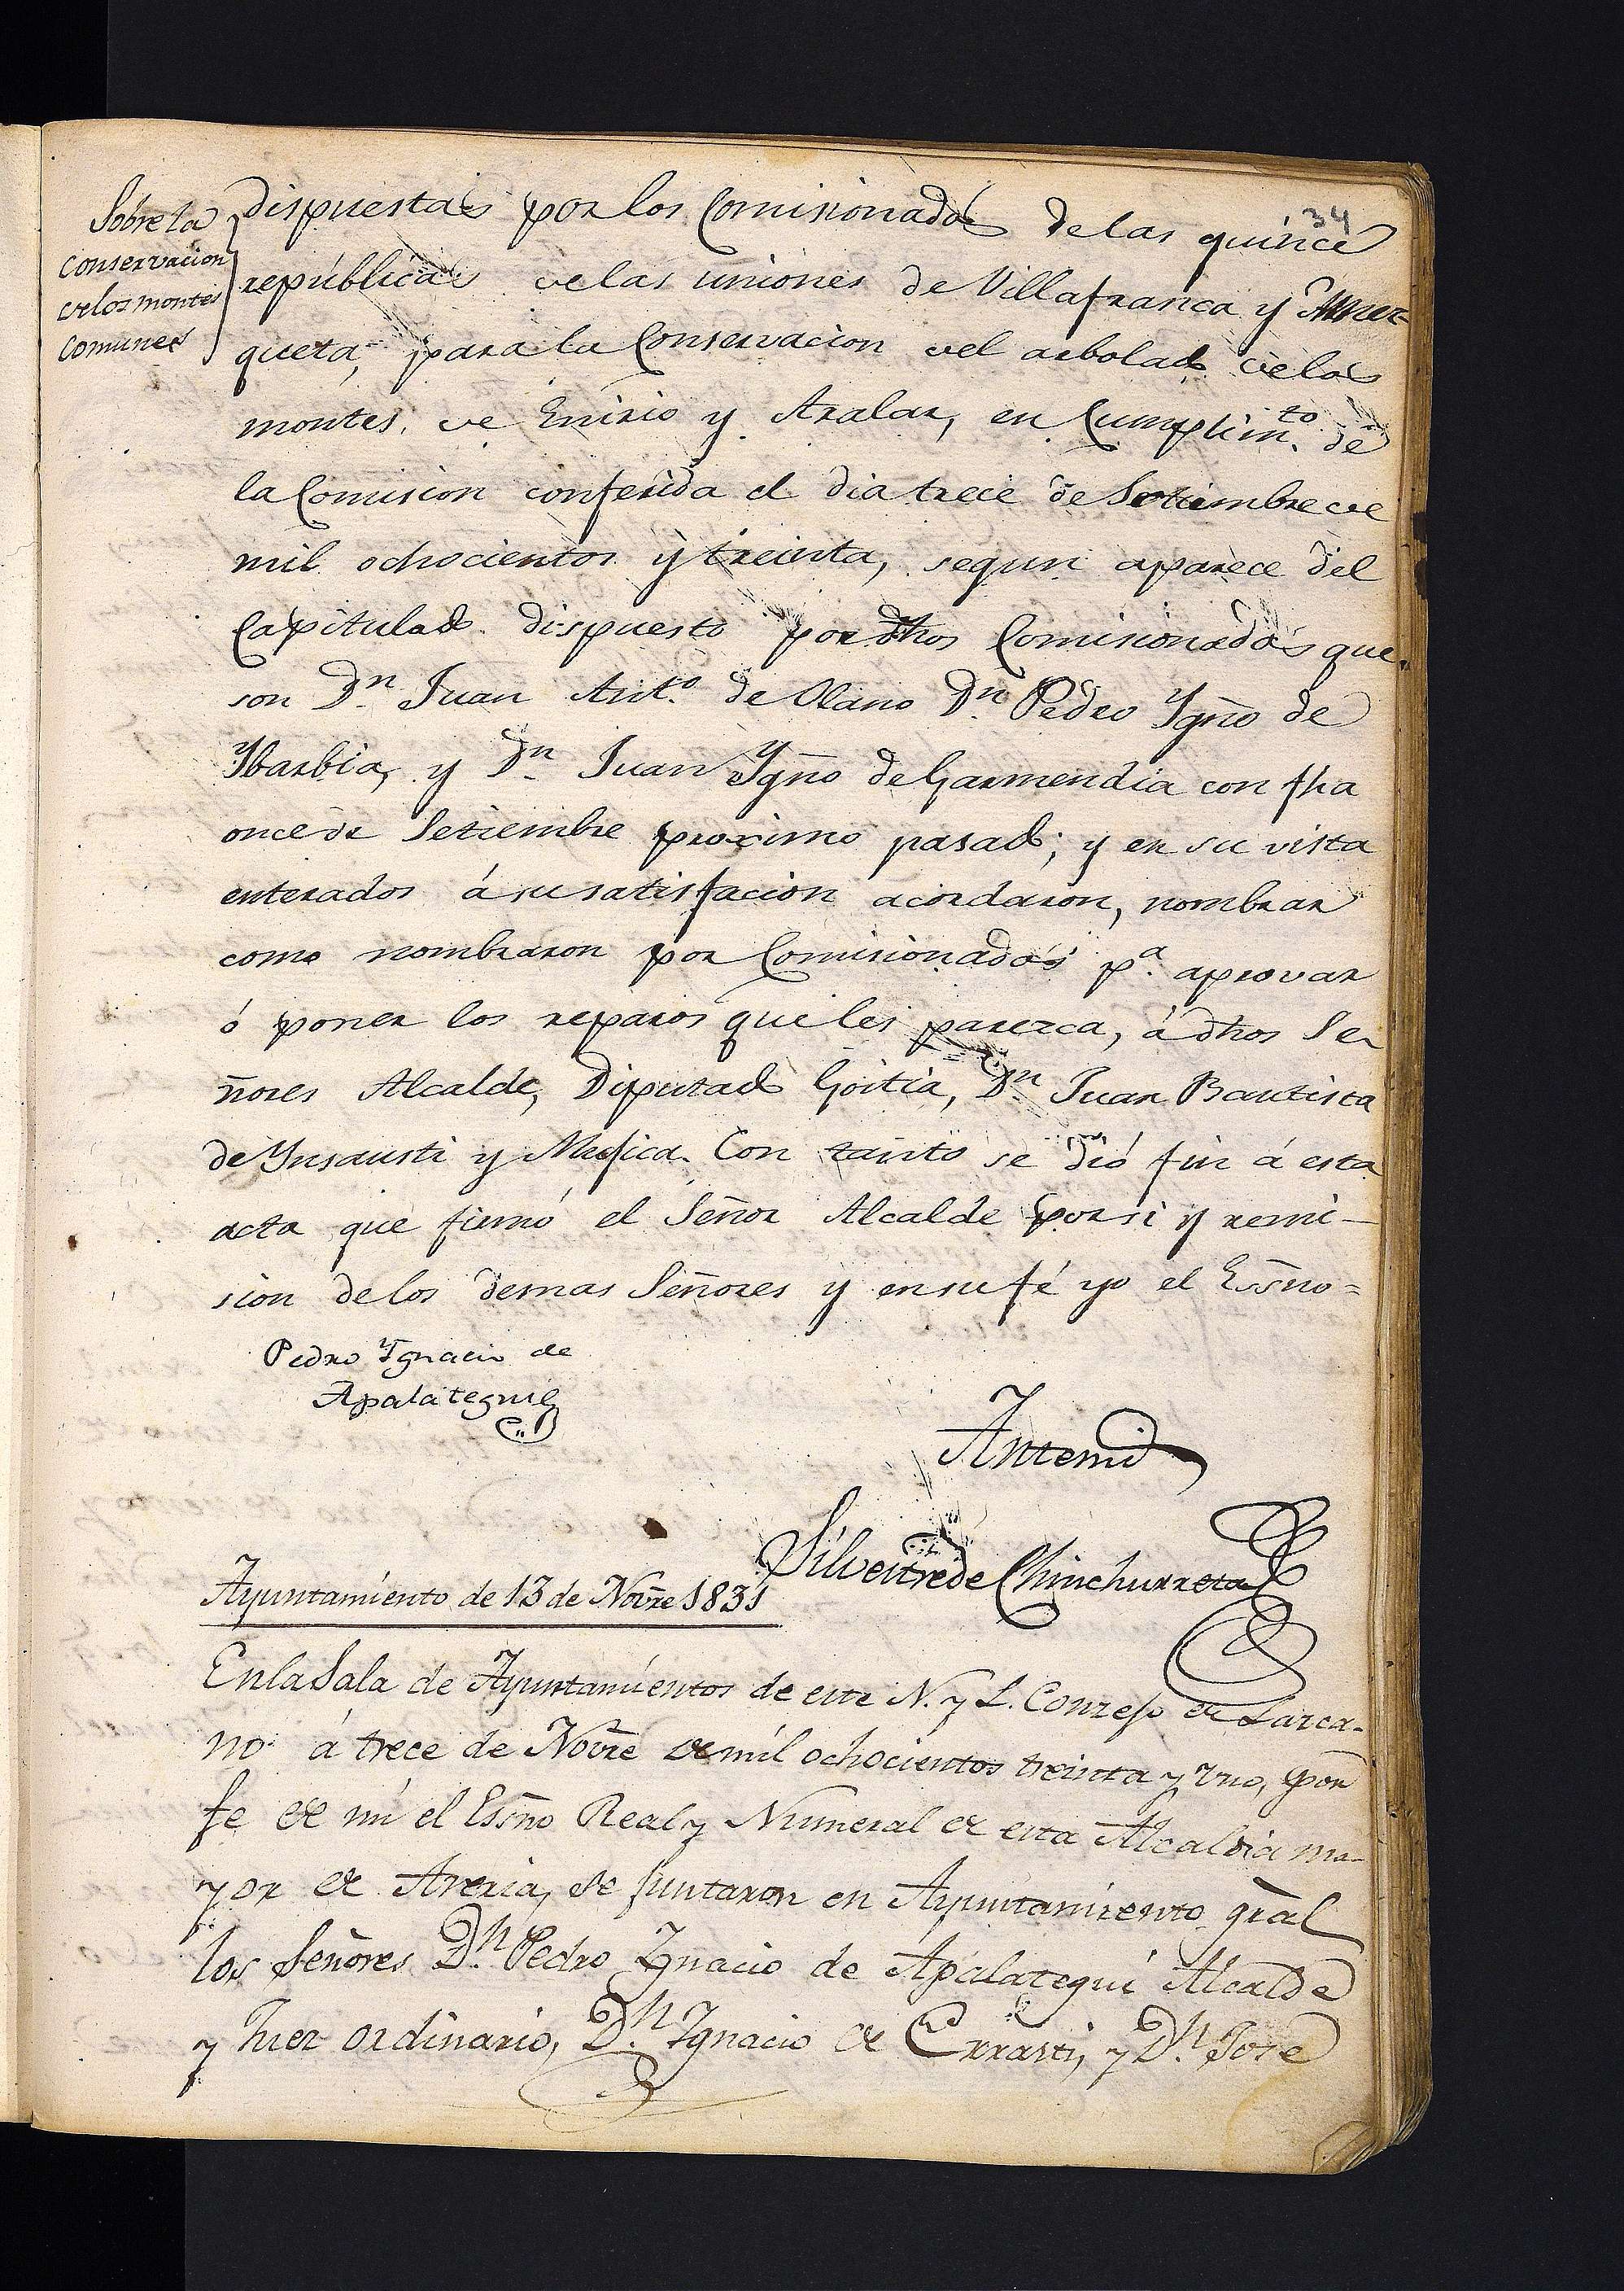 34
Sobre la
conservacion
de los montes
Comunes
dispuestas por los Comisionados de las quince
repúblicas de las uniones de Villafranca y Amez-
queta, para la Conservacion del arbolado de los
montes de Enirio y Aralar, en Cumplim.to de
la Comision conferida el dia trece de Setiembre de
mil ochocientos y treinta, segun aparece del
Capitulado dispuesto por dhos Comisionados que
son Dn. Juan Ant.o de Olano Dn. Pedro Ygño de
Ybarbia, y Dn. Juan Ygño de Garmendia con fha
once de Setiembre proximo pasado; y en su vista
enterados á su satisfacion acordaron, nombrar
como nombraron por Comisionados p.a aprovar
ó poner los reparos que les parezca, á dhos Se-
ñores Alcalde, Diputado Goitia, Dn. Juan Bautista
de Ynsausti y Mujica. Con tanto se dió fin á esta
acta que firmó el Señor Alcalde por si y remi-
sion de los demas Señores y en su fé yo el Essno=
Pedro Ygnacio de
Apalategui
Antemi
Silvestre de Chinchurreta
Ayuntamiento de 13 de Novre 1831
En la Sala de Ayuntamientos de este N. y L. Conzejo de Lazca-
no á trece de Novre de mil ochocientos treinta y uno, por
fe de mi el Essno Real y Numeral de esta Alcaldia ma-
yor de Areria, se juntaron en Ayuntamiento gral
los Señores Dn. Pedro Ignacio de Apalategui Alcalde
y Juez ordinario, Dn. Ignacio de Errasti, y Dn. José